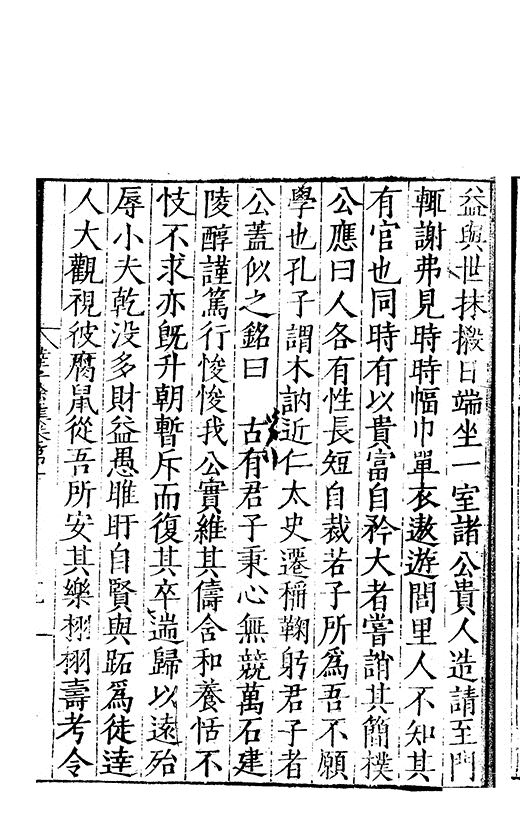 益與世抹摋日端坐一室諸公貴人造請至門
輒謝弗見時時幅巾單衣遨遊閭里人不知其
有官也同時有以貴富自矜大者嘗誚其簡樸
公應曰人各有性長短自裁若子所為吾不願
學也孔子謂木訥近仁太史遷稱鞠躬君子者
公蓋似之銘曰　古有君子秉心無競萬石建
陵醇謹篤行悛悛我公實維其儔舍和養恬不
忮不求亦既升朝暫斥而復其卒遄歸以遠殆
辱小夫乾没多財益愚睢盱自賢與跖為徒達
人大觀視彼腐鼠從吾所安其樂栩栩壽考令